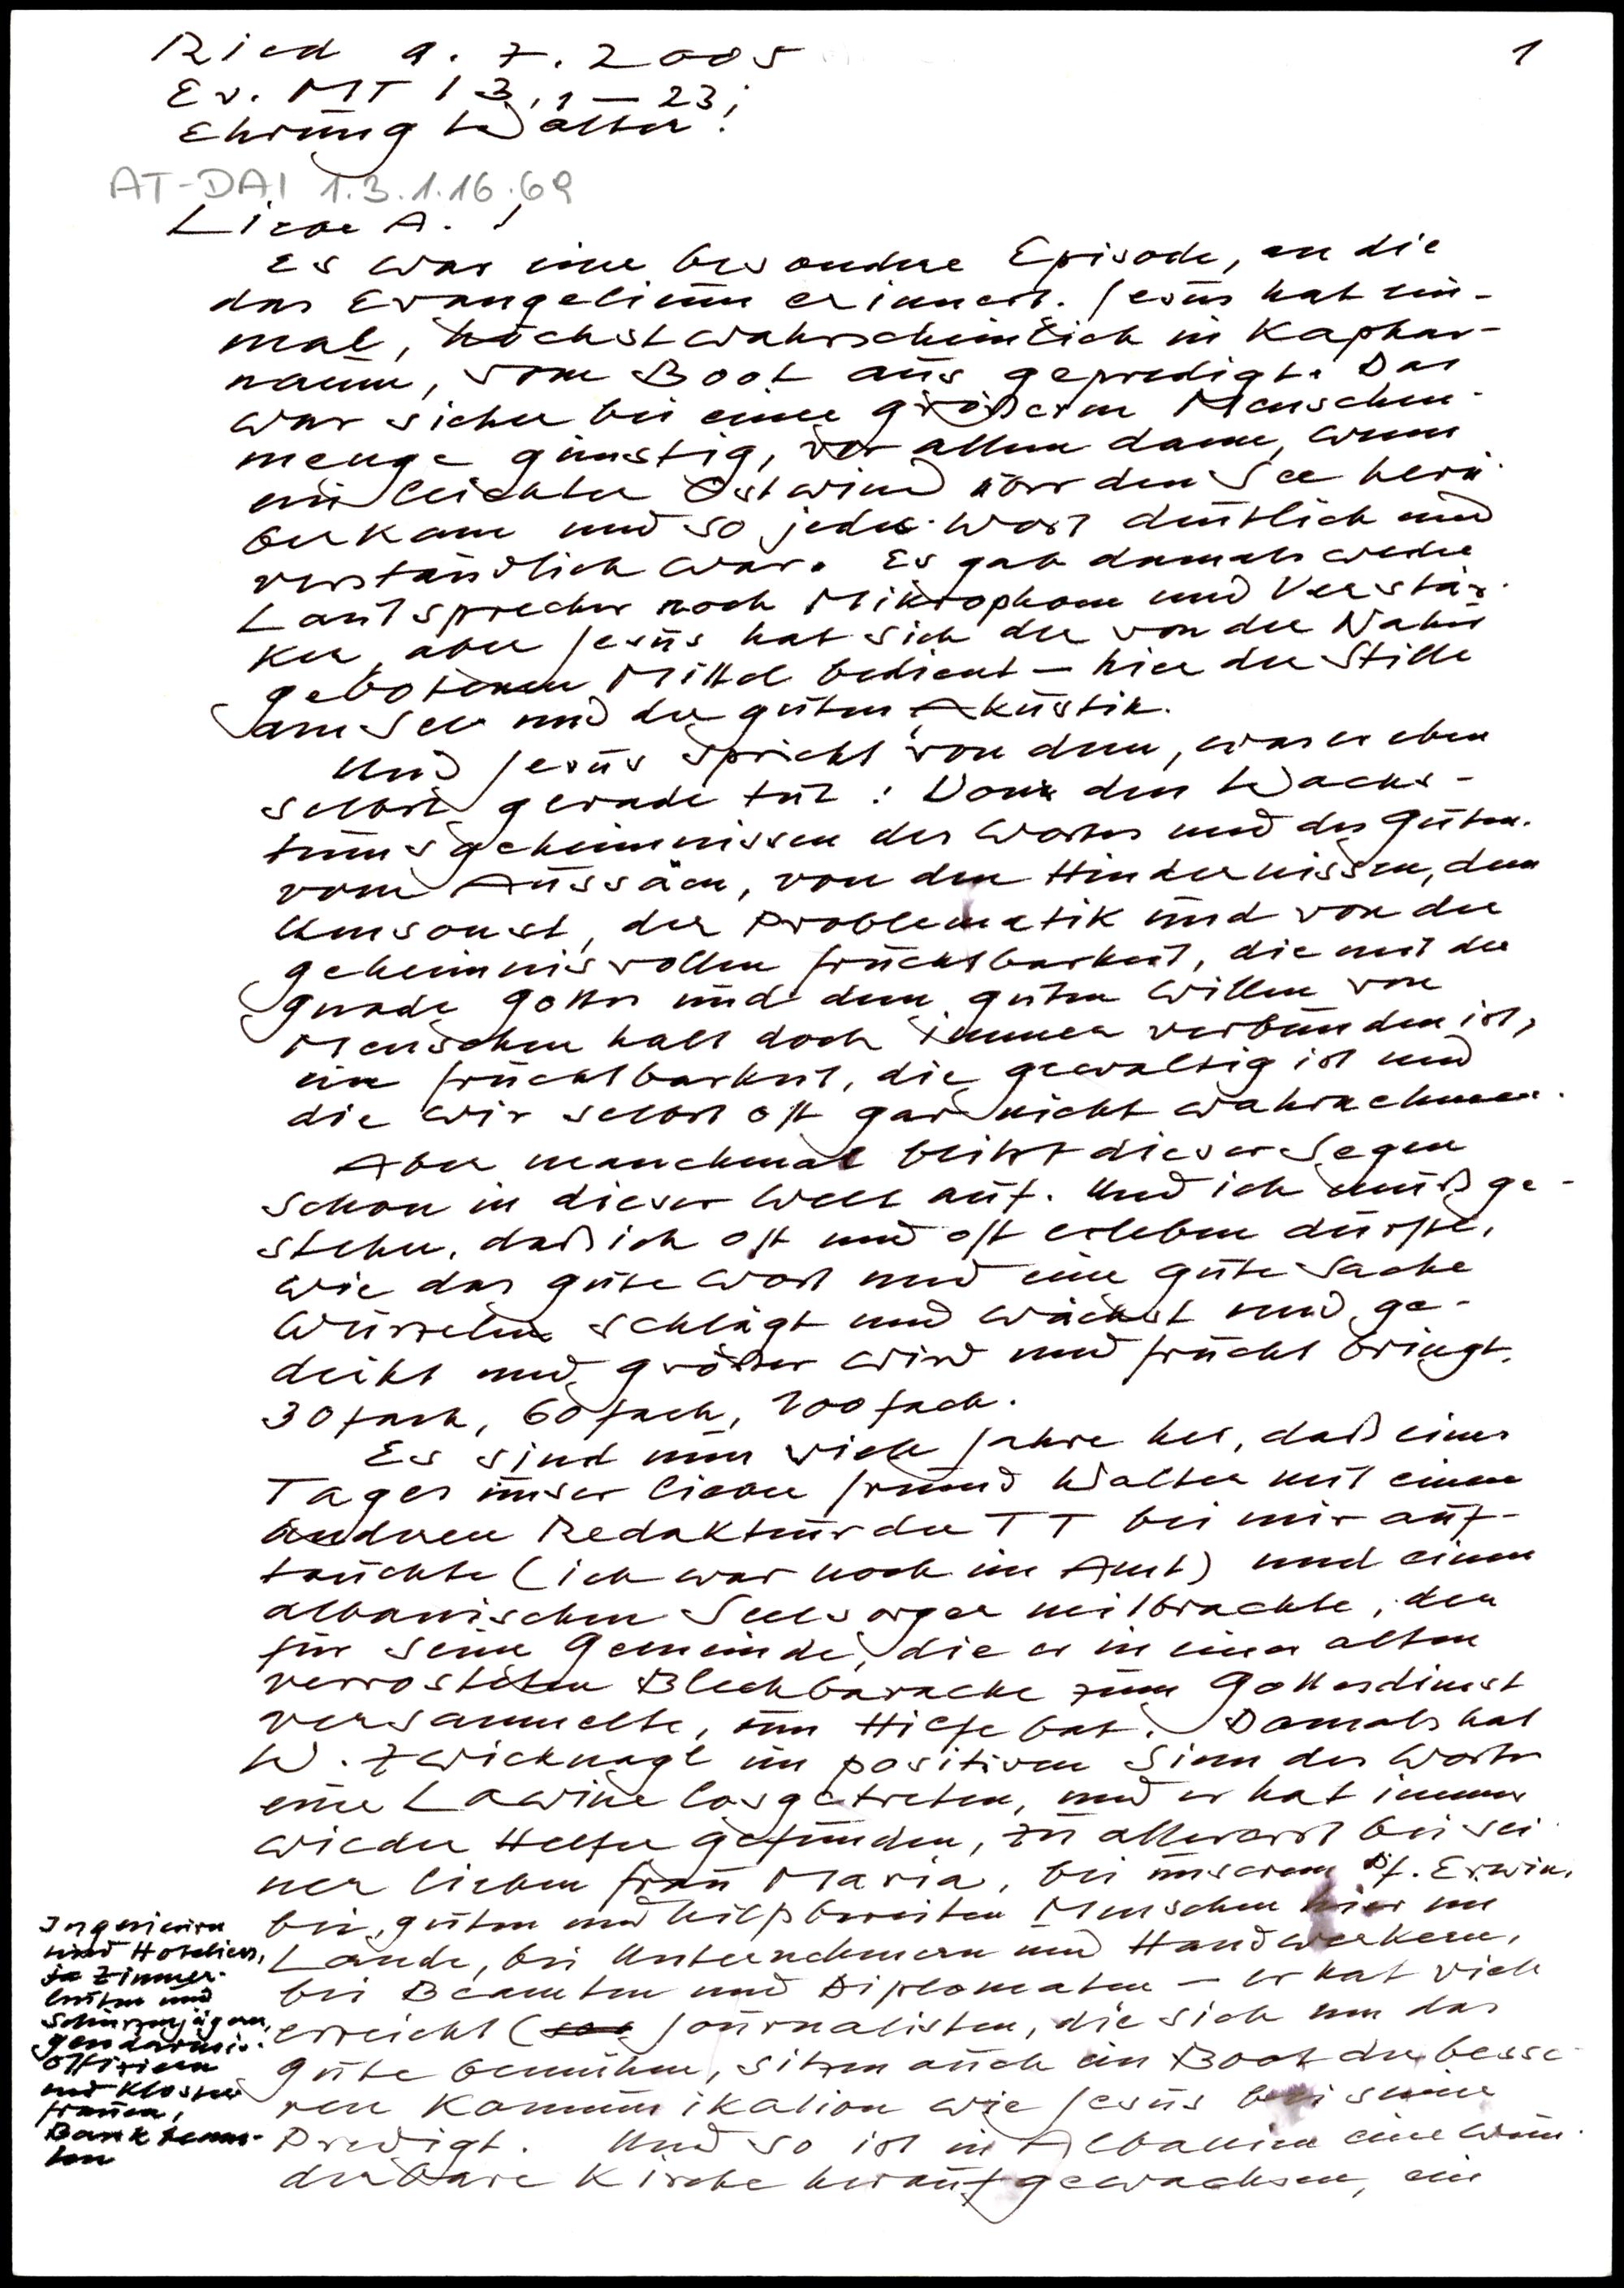 1
Ried 9. 7. 2005
Ev. MT 13,1–23;
Ehrung Walter!
AT-DAI 1.3.1.16.69
Liebe A. !
Es war eine besondere Episode, an die
das Evangelium erinnert. Jesus hat ein-
mal, höchstwahrscheinlich in Kaphar-
naum, vom Boot aus gepredigt. Das
war sicher bei einer größeren Menschen-
menge günstig, vor allem dann, wenn
ein leichter Ostwind über den See herü-
berkam und so jedes Wort deutlich und
verständlich war. Es gab damals weder
Lautsprecher noch Mikrophone und Verstär-
ker, aber Jesus hat sich der von der Natur
gebotenen Mittel bedient – hier der Stille
am See und der guten Akustik.
Und Jesus spricht von dem, was er eben
selbst gerade tut: Von den Wachs-
tumsgeheimnissen des Wortes und des Guten.
vom Aussäen, von den Hindernissen, dem
Umsonst, der Problematik und von der
geheimnisvollen Fruchtbarkeit, die mit der
Gnade Gottes und dem guten Willen von
Menschen halt doch immer verbunden ist,
eine Fruchtbarkeit, die gewaltig ist und
die wir selbst oft gar nicht wahrnehmen.
Aber manchmal blitzt dieser Segen
schon in dieser Welt auf. Und ich muß ge-
stehen, daß ich oft und oft erleben durfte,
wie das gute Wort und eine gute Sache
Wurzeln schlägt und wächst und ge-
deiht und größer wird und Frucht bringt,
30fach, 60fach, 100fach.
Es sind nun viele Jahre her, daß eines
Tages unser lieber Freund Walter mit einem
anderen Redakteur der TT bei mir auf-
tauchte (ich war noch im Amt) und einen
albanischen Seelsorger mitbrachte, der
für seine Gemeinde, die er in einer alten
verrosteten Blechbaracke zum Gottesdienst
versammelte, um Hilfe bat. Damals hat
W. Zwicknagl im positiven Sinn des Wortes
eine Lawine losgetreten, und er hat immer
wieder Helfer gefunden, zu allererst bei sei-
ner lieben Frau Maria, bei unserem Pf. Erwin,
bei guten und hilfsbereiten Menschen hier im
Lande, bei Unternehmern und Handwerkern,
bei Beamten und Diplomaten – er hat viele
erreicht (Journalisten, die sich um das
Gute bemühen, sitzen auch im Boot der besse-
ren Kommunikation wie Jesus bei seiner
Predigt. Und so ist in Albanien eine wun-
derbare Kirche heraufgewachsen, ein
Ingenieuren
und Hoteliers,
Zimmer-
leuten und
Schürzenjägern,
Gendarmerie-
offizieren
und Kloster
frauen,
Bankbeam-
ten